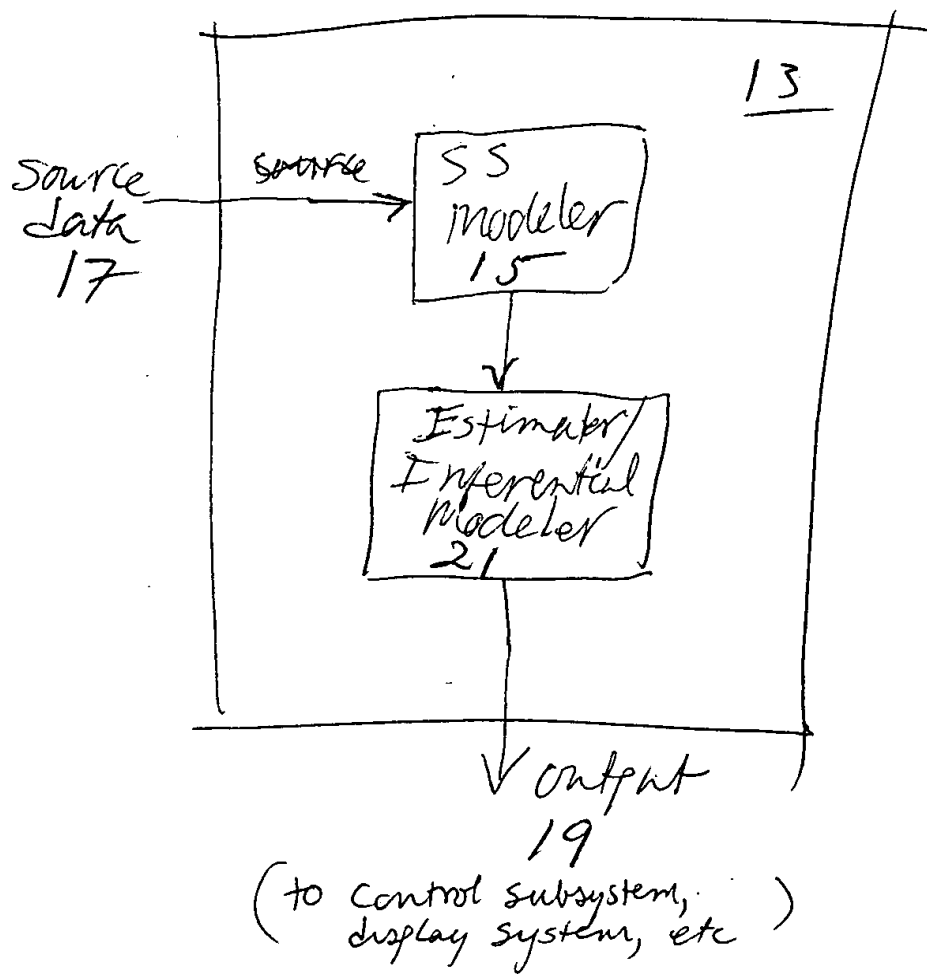 13
source
data
17
SS
modeler
15
Estimator/
Inferential
modeler
21
output
19
(to control subsystem,
display system, etc)